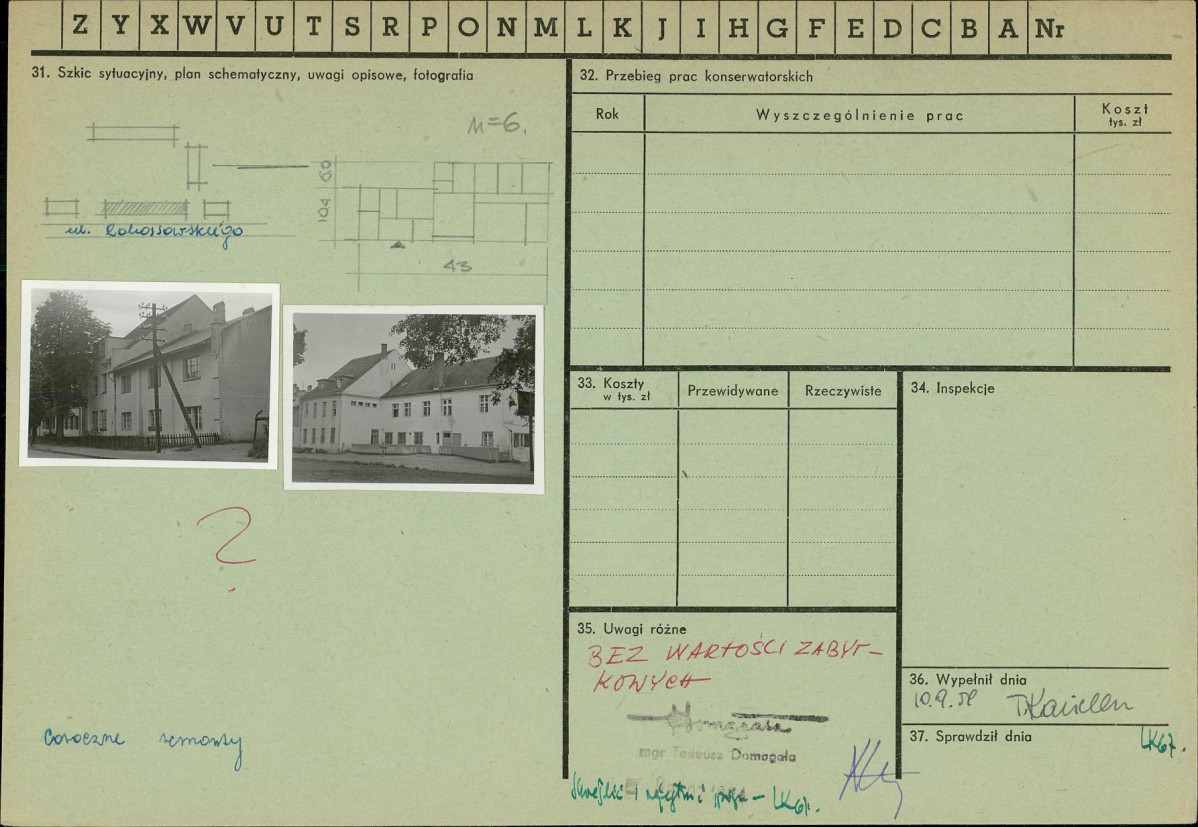 Z Y X W V U T S R P O N M L K J I H G F E D C B A Nr
31. Szkic sytuacyjny, plan schematyczny, uwagi opisowe, fotografia
n=6.
60
104
43
ul. Rokossowskiego
Coroczne remonty
32. Przebieg prac konserwatorskich
Rok
Wyszczególnienie prac
Koszt
tys. zł
33. Koszty
w tys. zł
Przewidywane
Rzeczywiste
34. Inspekcje
35. Uwagi różne
BEZ WARTOŚCI ZABYT-
KOWYCH
mgr Tadeusz Domagała
36. Wypełnił dnia
37. Sprawdził dnia
LK67.